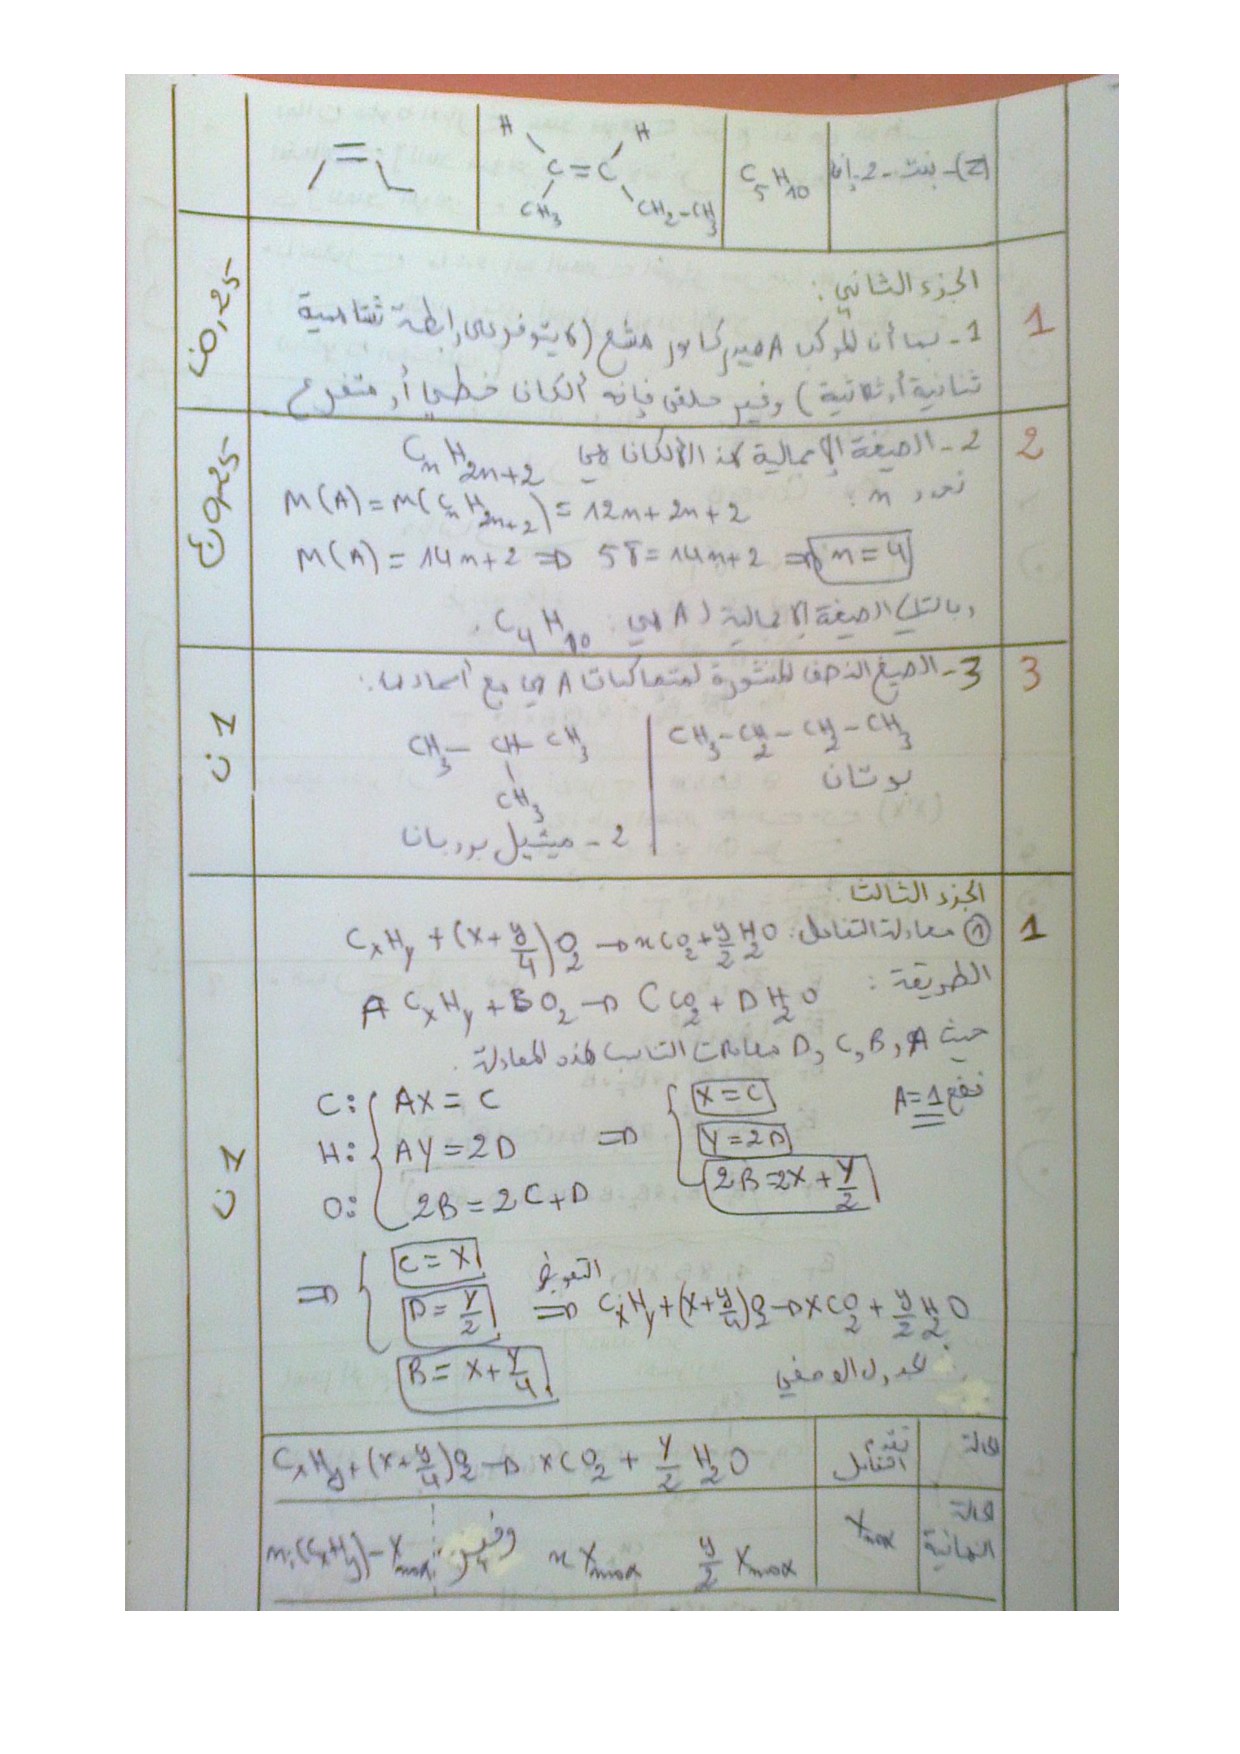 (Z)- بنت-2-إن C5H10
H H
C = C
CH3 CH2-CH3
الجزء الثاني :
1 1- بما أن المركب A هيدروكاربور مشبع (لا يتوفر على رابطة تساهمية
ثنائية أو ثلاثية) وغير حلقي فإنه ألكانا خطي أو متفرع
0,25ن
2 2- الصيغة الإجمالية لهذا الألكانا هي CnH2n+2
نحدد n :
M(A) = M(CnH2n+2) = 12n+2n+2
M(A) = 14n+2 => 58 = 14n+2 => n = 4
وبالتالي الصيغة الإجمالية ل A هي : C4H10.
3 3- الصيغ النصف المنشورة لمتماكبات A هي مع أسمائها :
CH3-CH2-CH2-CH3
بوتان
CH3-CH-CH3
CH3
2- ميثيل بروبانا
1ن
الجزء الثالث :
1 ① معادلة التفاعل: CxHy + (x+y/4)O2 → xCO2 + y/2 H2O
الطريقة :
A CxHy + B O2 → C CO2 + D H2O
حيث A, B, C, D معاملات التناسب لهذه المعادلة.
نضع A=1
C: AX = C => X = C
H: AY = 2D Y = 2D
O: 2B = 2C+D 2B = 2X + Y/2
=> C = X
D = Y/2 التعويض => CxHy + (x+y/4)O2 → xCO2 + y/2 H2O
B = X + Y/4
1ن
الجدول الوصفي
الحالة تقدم التفاعل CxHy + (x+y/4)O2 → xCO2 + y/2 H2O
الحالة النهائية Xmax ni(CxHy)-Xmax وفير x Xmax y/2 Xmax